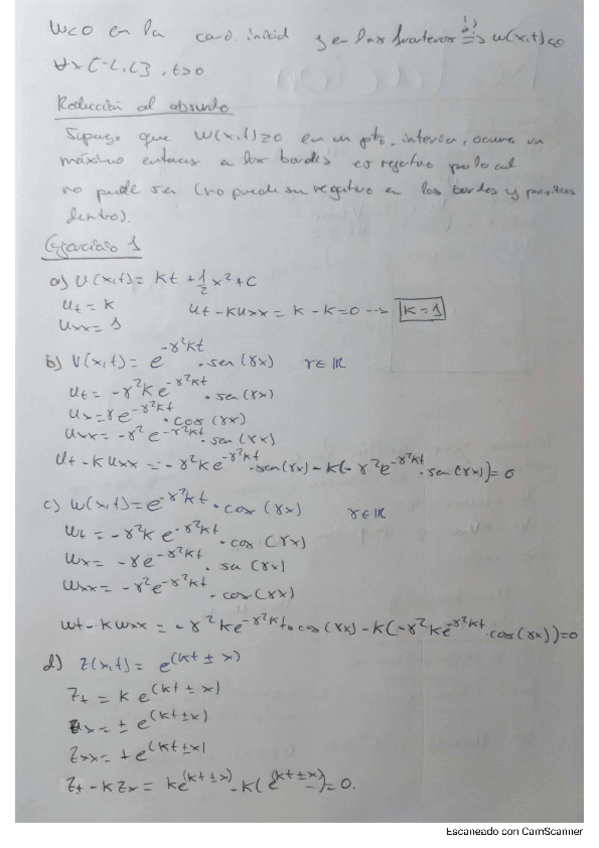 w<0 en la cond. inicial y en las fronteras 1) => w(x,t)<0
∀x [-L,L], t>0
Reducción al absurdo
Supongo que w(x,t)≥0 en un pto. interior, ocurre un
máximo entonces a los bordes es negativo por lo cual
no puede ser (no puede ser negativo en los bordes y positivo
dentro).
Ejercicio 1
a) U(x,t)= kt + 1/2 x² + C
ut = k        ut - kuxx = k - k = 0 --> k = 1
uxx = 1
b) V(x,t) = e^(-γ²kt) · sen(γx)    γ∈ℝ
ut = -γ²k e^(-γ²kt) · sen(γx)
ux = γe^(-γ²kt) · cos(γx)
uxx = -γ² e^(-γ²kt) · sen(γx)
ut - kuxx = -γ²ke^(-γ²kt) · sen(γx) - k(-γ²e^(-γ²kt) · sen(γx)) = 0
c) w(x,t) = e^(-γ²kt) · cos(γx)    γ∈ℝ
wt = -γ²k e^(-γ²kt) · cos(γx)
wx = -γe^(-γ²kt) · sen(γx)
wxx = -γ²e^(-γ²kt) · cos(γx)
wt - kwxx = -γ²ke^(-γ²kt) · cos(γx) - k(-γ²ke^(-γ²kt) · cos(γx)) = 0
d) Z(x,t) = e^(kt ± x)
Zt = k e^(kt ± x)
Zx = ± e^(kt ± x)
Zxx = + e^(kt ± x)
Zt - kZx = ke^(kt ± x) - k(e^(kt ± x)) = 0.
Escaneado con CamScanner